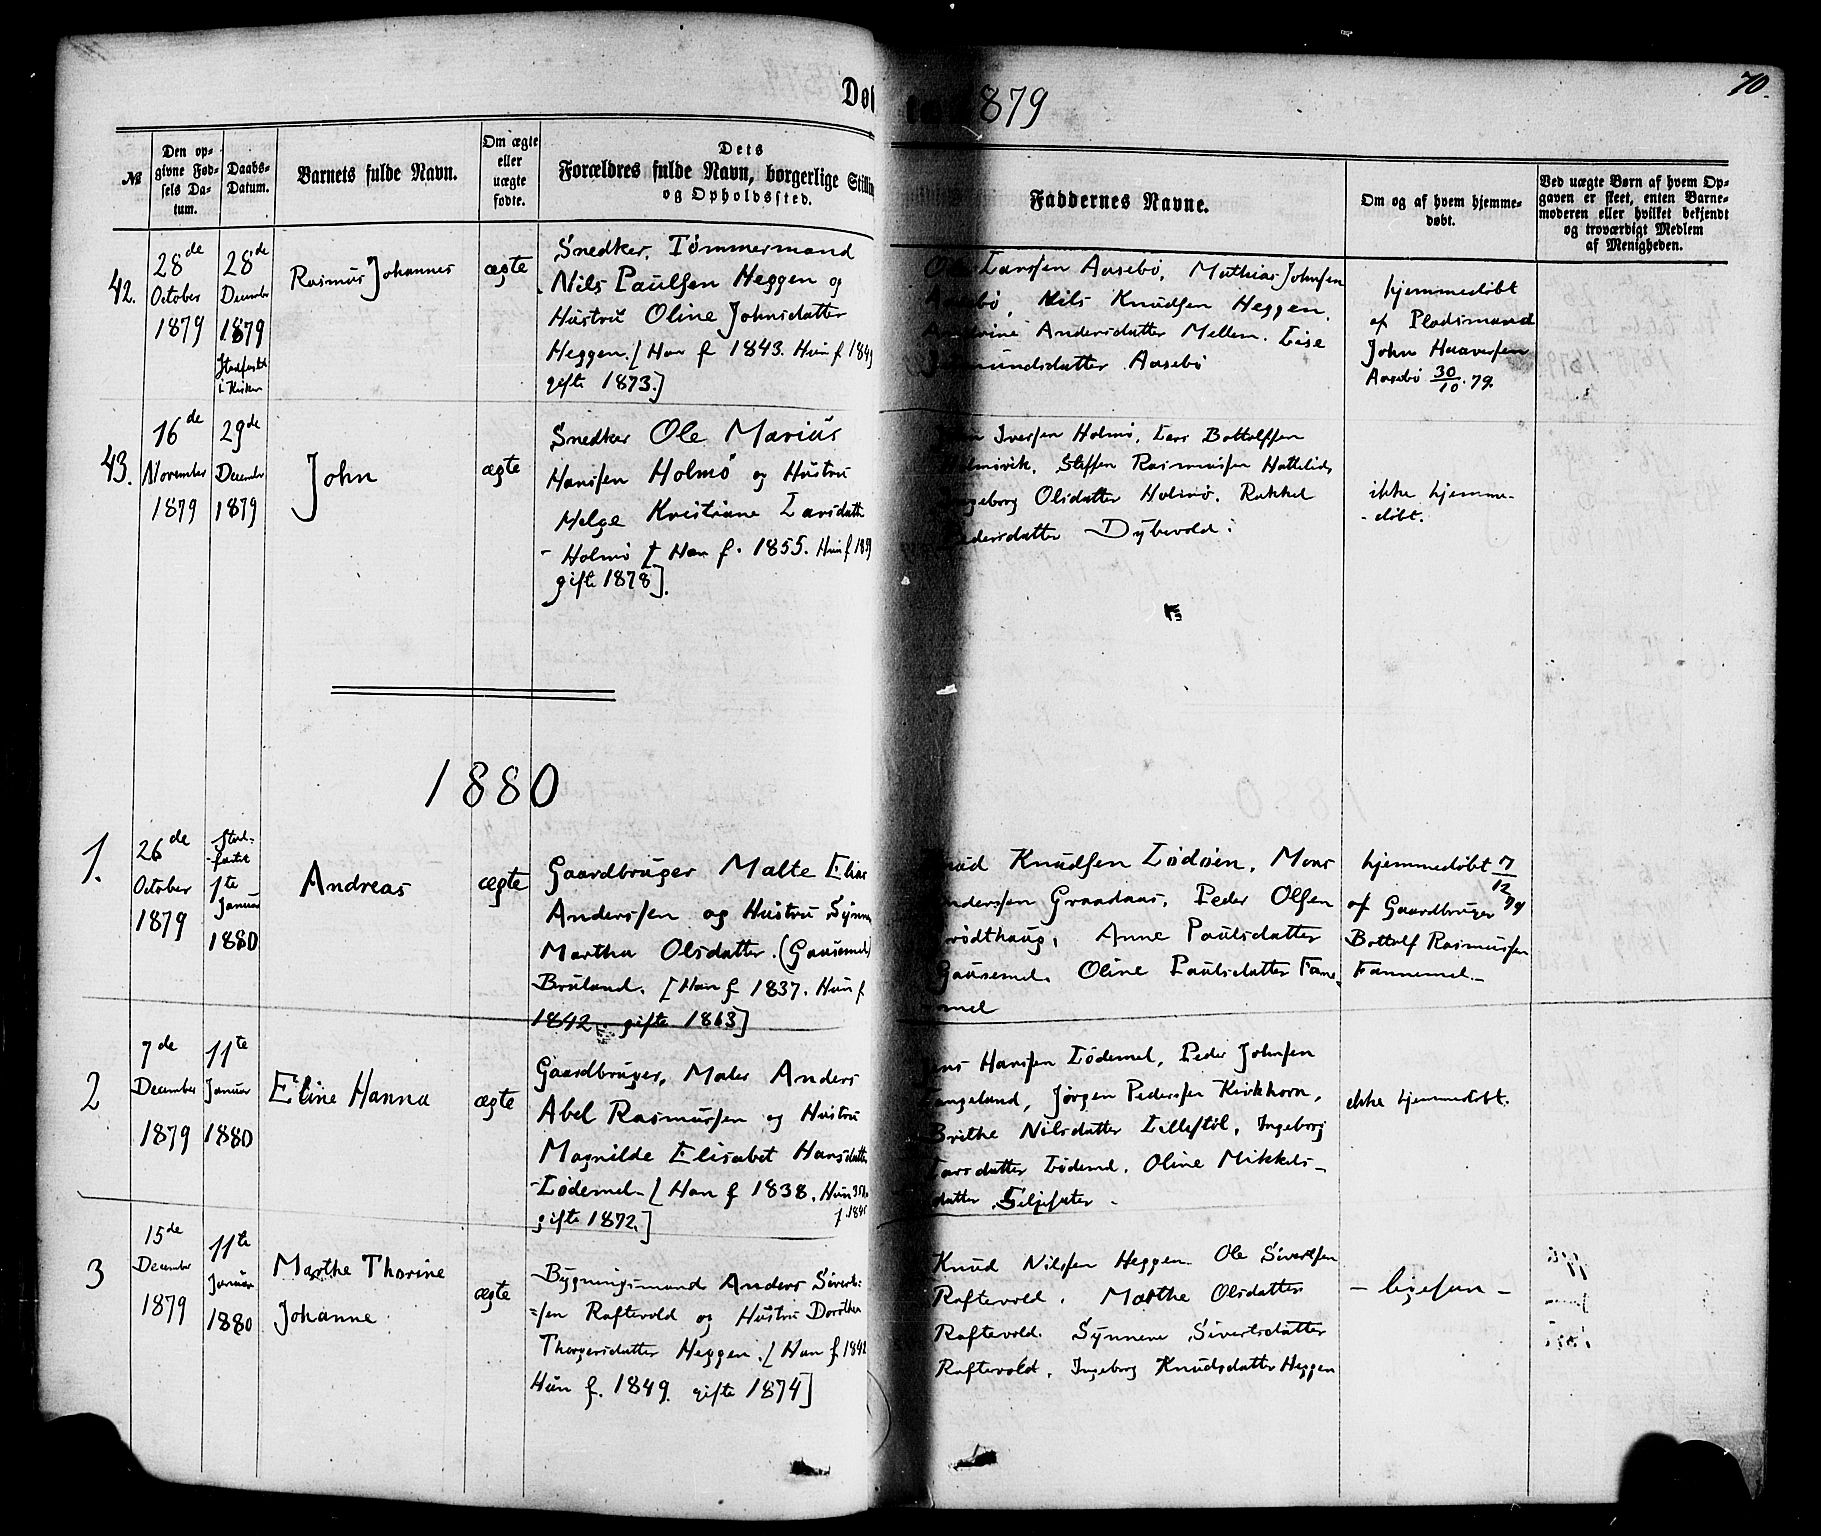 70.
1879
№
Den op-
givne Fød-
sels Da-
tum.
Daabs-
Datum.
Barnets fulde Navn.
Om ægte
eller
uægte
fødte.
Dets
Forældres fulde Navn, borgerlige Stilling
og Opholdssted.
Faddernes Navne.
Om og af hvem hjemme-
døbt.
Ved uægte Børn af hvem Op-
gaven er skeet, enten Barne-
moderen eller hvilket bekjendt
og troværdigt Medlem
af Menigheden.
42.
28de
October
1879
28de
December
1879
Stadfæstet
i Kirken
Rasmus Johannes
ægte
Snedker, Tømmermand
Nils Paulsen Heggen og
Hustru Oline Johnsdatter
Heggen. [Han f 1843. Hun f 1849
gifte 1873.]
Larssen Aasebø, Mathias Johnsen
Nils Knudsen Heggen.
Andersdatter Mellem. Lise
Aasebø
hjemmedøbt
af Pladsmand
John Haaversen
Aasebø 30/10. 79.
43.
16de
November
1879
29de
December
1879
John
ægte
Snedker Ole Marius
Hanssen Holmö og Hustru
Helge Kristiane Larsdatter
- Holmö [Han f. 1855. Hun f
gifte 1878].
Iverssen Holmö, Lars Bottolfssen
Holmövik, Steffen Rasmussen Hattelid,
Ingeborg Olsdatter Holmö, Rakkel
Pedersdatter Dybevold.
ikke hjemme-
-døbt.
1880
1.
26de
October
1879
Stad-
fæstet
1te
Januar
1880
Andreas
ægte
Gaardbruger Malte Elias
Anderssen og Hustru Synneve
Martha Olsdatter. (Gausemel)
Bruland. [Han f 1837. Hun f
1842. gifte 1863]
Knud Knudsen Lødøen, Mons
Anderssen Graadaas, Peder Olsen
Anne Paulsdatter
Gausemel. Oline Paulsdatter Fanne-
mel
hjemmedøbt 7/12 79
af Gaardbruger
Bottolf Rasmussen
Fannemel -
2
7de
December
1879
11te
Januar
1880
Eline Hanna
ægte
Gaardbruger, Maler Anders
Abel Rasmussen og Hustru
Magnilde Elisabet Hansdatter
- Lødemel - [Han f 1838. Hun
gifte 1872.]
Jens Hanssen Lødemel, Peder Johnsen
Langeland, Jørgen Pederssen Kirkhorn,
Brithe Nilsdatter Lillestöl, Ingeborg
Larsdatter Lødemel. Oline Mikkels-
datter Seljesæter -
ikke hjemmedøbt.
3
15de
December
1879
11te
Januar
1880
Marthe Thorine
Johanne
ægte
- Bygningsmand Anders Siverts-
=sen Raftevold og Hustru Dorothea
Thorgersdatter Heggen. [Han f 1842
Hun f. 1849. gifte 1874]
Knud Nilssen Heggen. Ole Sivertsen
Raftevold. Marthe Olsdatter
Raftevold. Synneve Sivertsdatter
Raftevold, Ingeborg Knudsdatter Heggen
- ligesaa -